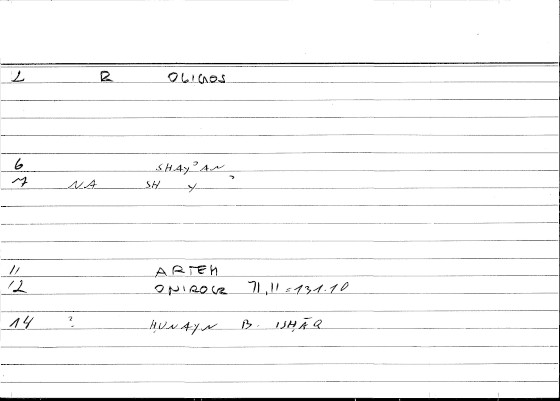 1 R OLIGOS
6 SHAYʾAN
7 NA SH Y ʾ
11 ARTEM
12 ONIROCR 71,11=131.10
14 ? ḤUNAYN B. ISḤĀQ